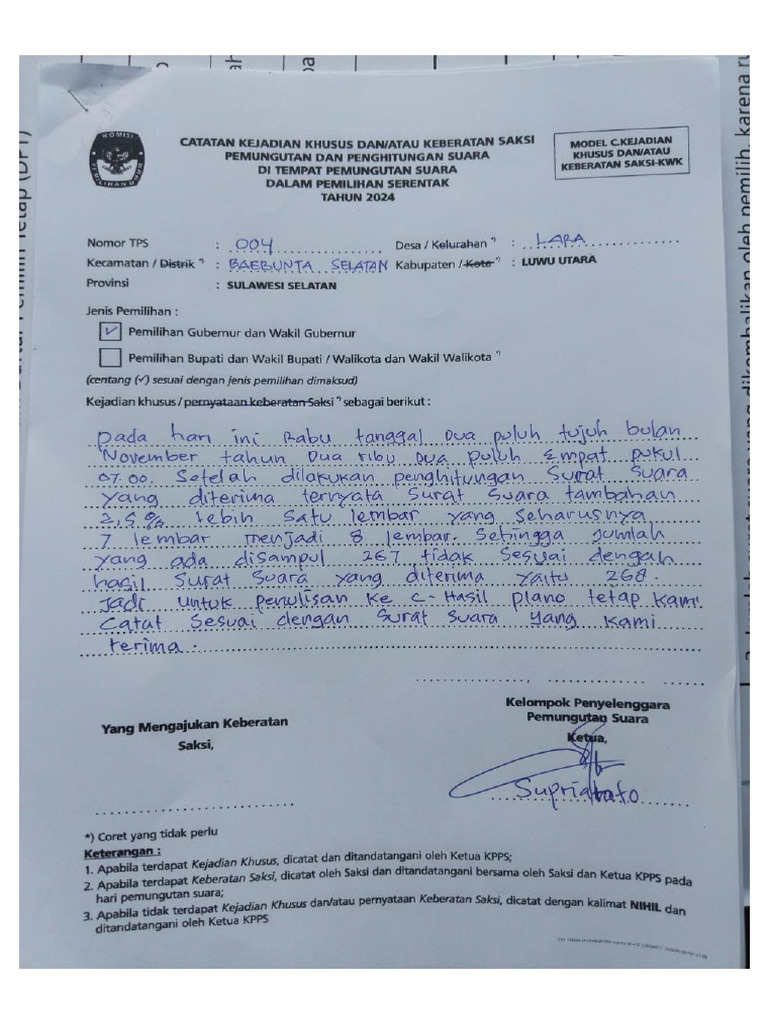 ah
pa
KOMISI
PEMILIHAN UMUM
CATATAN KEJADIAN KHUSUS DAN/ATAU KEBERATAN SAKSI
PEMUNGUTAN DAN PENGHITUNGAN SUARA
DI TEMPAT PEMUNGUTAN SUARA
DALAM PEMILIHAN SERENTAK
TAHUN 2024
MODEL C.KEJADIAN
KHUSUS DAN/ATAU
KEBERATAN SAKSI-KWK
Nomor TPS : 004 Desa / Kelurahan *) : LARA
Kecamatan / Distrik *) : BAEBUNTA SELATAN Kabupaten / Kota *) : LUWU UTARA
Provinsi : SULAWESI SELATAN
Jenis Pemilihan :
✓ Pemilihan Gubernur dan Wakil Gubernur
Pemilihan Bupati dan Wakil Bupati / Walikota dan Wakil Walikota *)
(centang (✓) sesuai dengan jenis pemilihan dimaksud)
Kejadian khusus / pernyataan keberatan Saksi *) sebagai berikut :
pada hari ini Rabu tanggal Dua puluh tujuh bulan
November tahun Dua ribu Dua puluh Empat pukul
07.00. Setelah dilakukan penghitungan Surat Suara
yang diterima ternyata Surat Suara tambahan
2,5 % Lebih Satu lembar yang seharusnya
7 lembar menjadi 8 lembar. Sehingga jumlah
yang ada disampul 267 tidak Sesuai dengan
hasil Surat Suara yang diterima yaitu 268.
Jadi untuk penulisan ke C-Hasil plano tetap kami
Catat Sesuai dengan Surat Suara yang kami
terima.
Yang Mengajukan Keberatan
Saksi,
Kelompok Penyelenggara
Pemungutan Suara
Ketua,
*) Coret yang tidak perlu
Keterangan :
1. Apabila terdapat Kejadian Khusus, dicatat dan ditandatangani oleh Ketua KPPS;
2. Apabila terdapat Keberatan Saksi, dicatat oleh Saksi dan ditandatangani bersama oleh Saksi dan Ketua KPPS pada
hari pemungutan suara;
3. Apabila tidak terdapat Kejadian Khusus dan/atau pernyataan Keberatan Saksi, dicatat dengan kalimat NIHIL dan
ditandatangani oleh Ketua KPPS
dikembalikan oleh pemilih, karena